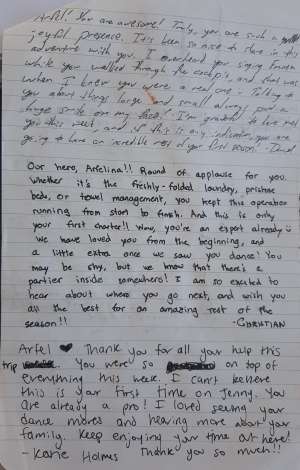 Arfel! You are awesome! Truly, you are such a
joyful presence. It's been so nice to share in this
adventure with you. I overheard you saying
while you walked through the cockpit, and that was
when I knew you were a real one. Talking to
you about things large and small always put a
huge smile on my face! I'm grateful to have met
you this week and if this is any indication, you are
going to have an incredible rest of your first season! - David
Our hero, Arfelina!! Round of applause for you.
Whether it's the freshly-folded laundry, pristine
beds, or towel management, you kept this operation
running from start to finish. And this is only
your first charter!! Wow, you're an expert already
We have loved you from the beginning, and
a little extra once we saw you dance! You
may be shy, but we know that there's a
partier inside somewhere! I am so excited to
hear about where you go next, and wish you
all the best for an amazing rest of the
season!! -CHRISTIAN
Arfel ♥ Thank you for all your help this
trip. You were so on top of
everything this week. I can't believe
this is your first time on Jenny. You
are already a pro! I loved seeing your
dance moves and hearing more about your
family. Keep enjoying your time out here!
- Karie Holmes Thank you so much!!